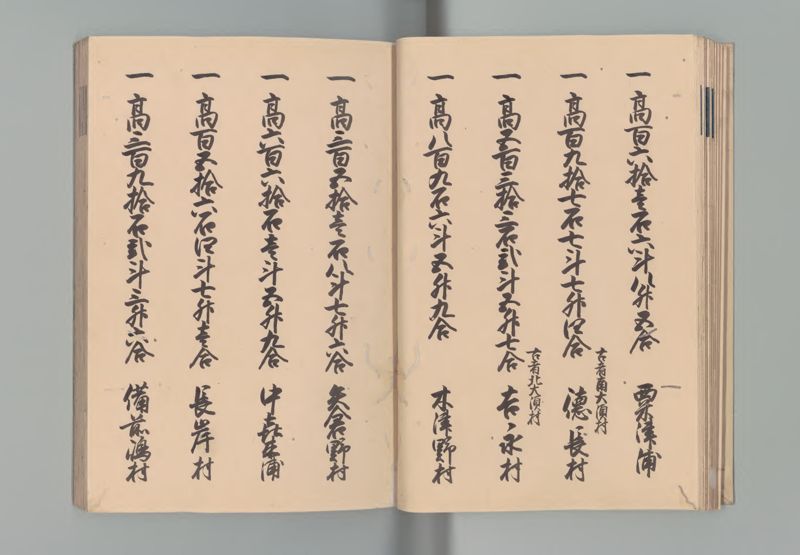 一 高百六拾壱石六斗八升五合 粟津浦
一 高百九拾七石七斗七升四合 古者南大須村 徳長村
一 高五百三拾三石弐斗五升七合 古者北大須村 吉永村
一 高八百九石六斗五升九合 木津野村
一 高三百五拾壱石八斗七升六合 矢倉野村
一 高六百六拾石壱斗五升九合 中喜来浦
一 高百五拾六石四斗七升壱合 長岸村
一 高三百九拾石弐斗三升六合 備前嶋村